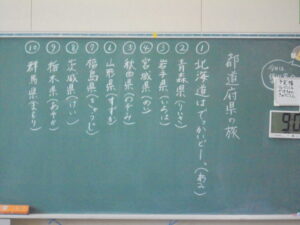 都道府県の旅
① 北海道はでっかいどー。(あみ)
② 青森県(りいさ)
③ 岩手県(いろは)
④ 宮城県(のい)
⑤ 秋田県(のぞみ)
⑥ 山形県(すずな)
⑦ 福島県
⑧ 茨城県(けい)
⑨ 栃木県(あやか)
⑩ 群馬県(まもり)